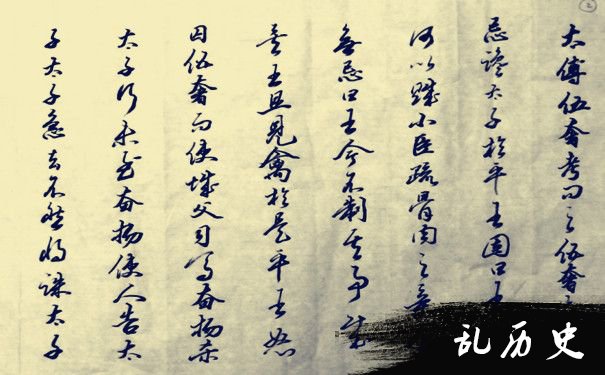 太傅伍奢考问之伍奢
忌讒太子於平王因曰王
何以賊小臣疏骨肉之
無忌曰王今不制其事成
矣王且見禽於是平王怒
囚伍奢而使城父司馬奮揚杀
太子行未至奮揚使人告太
子太子急去不然將誅太子
乱历史